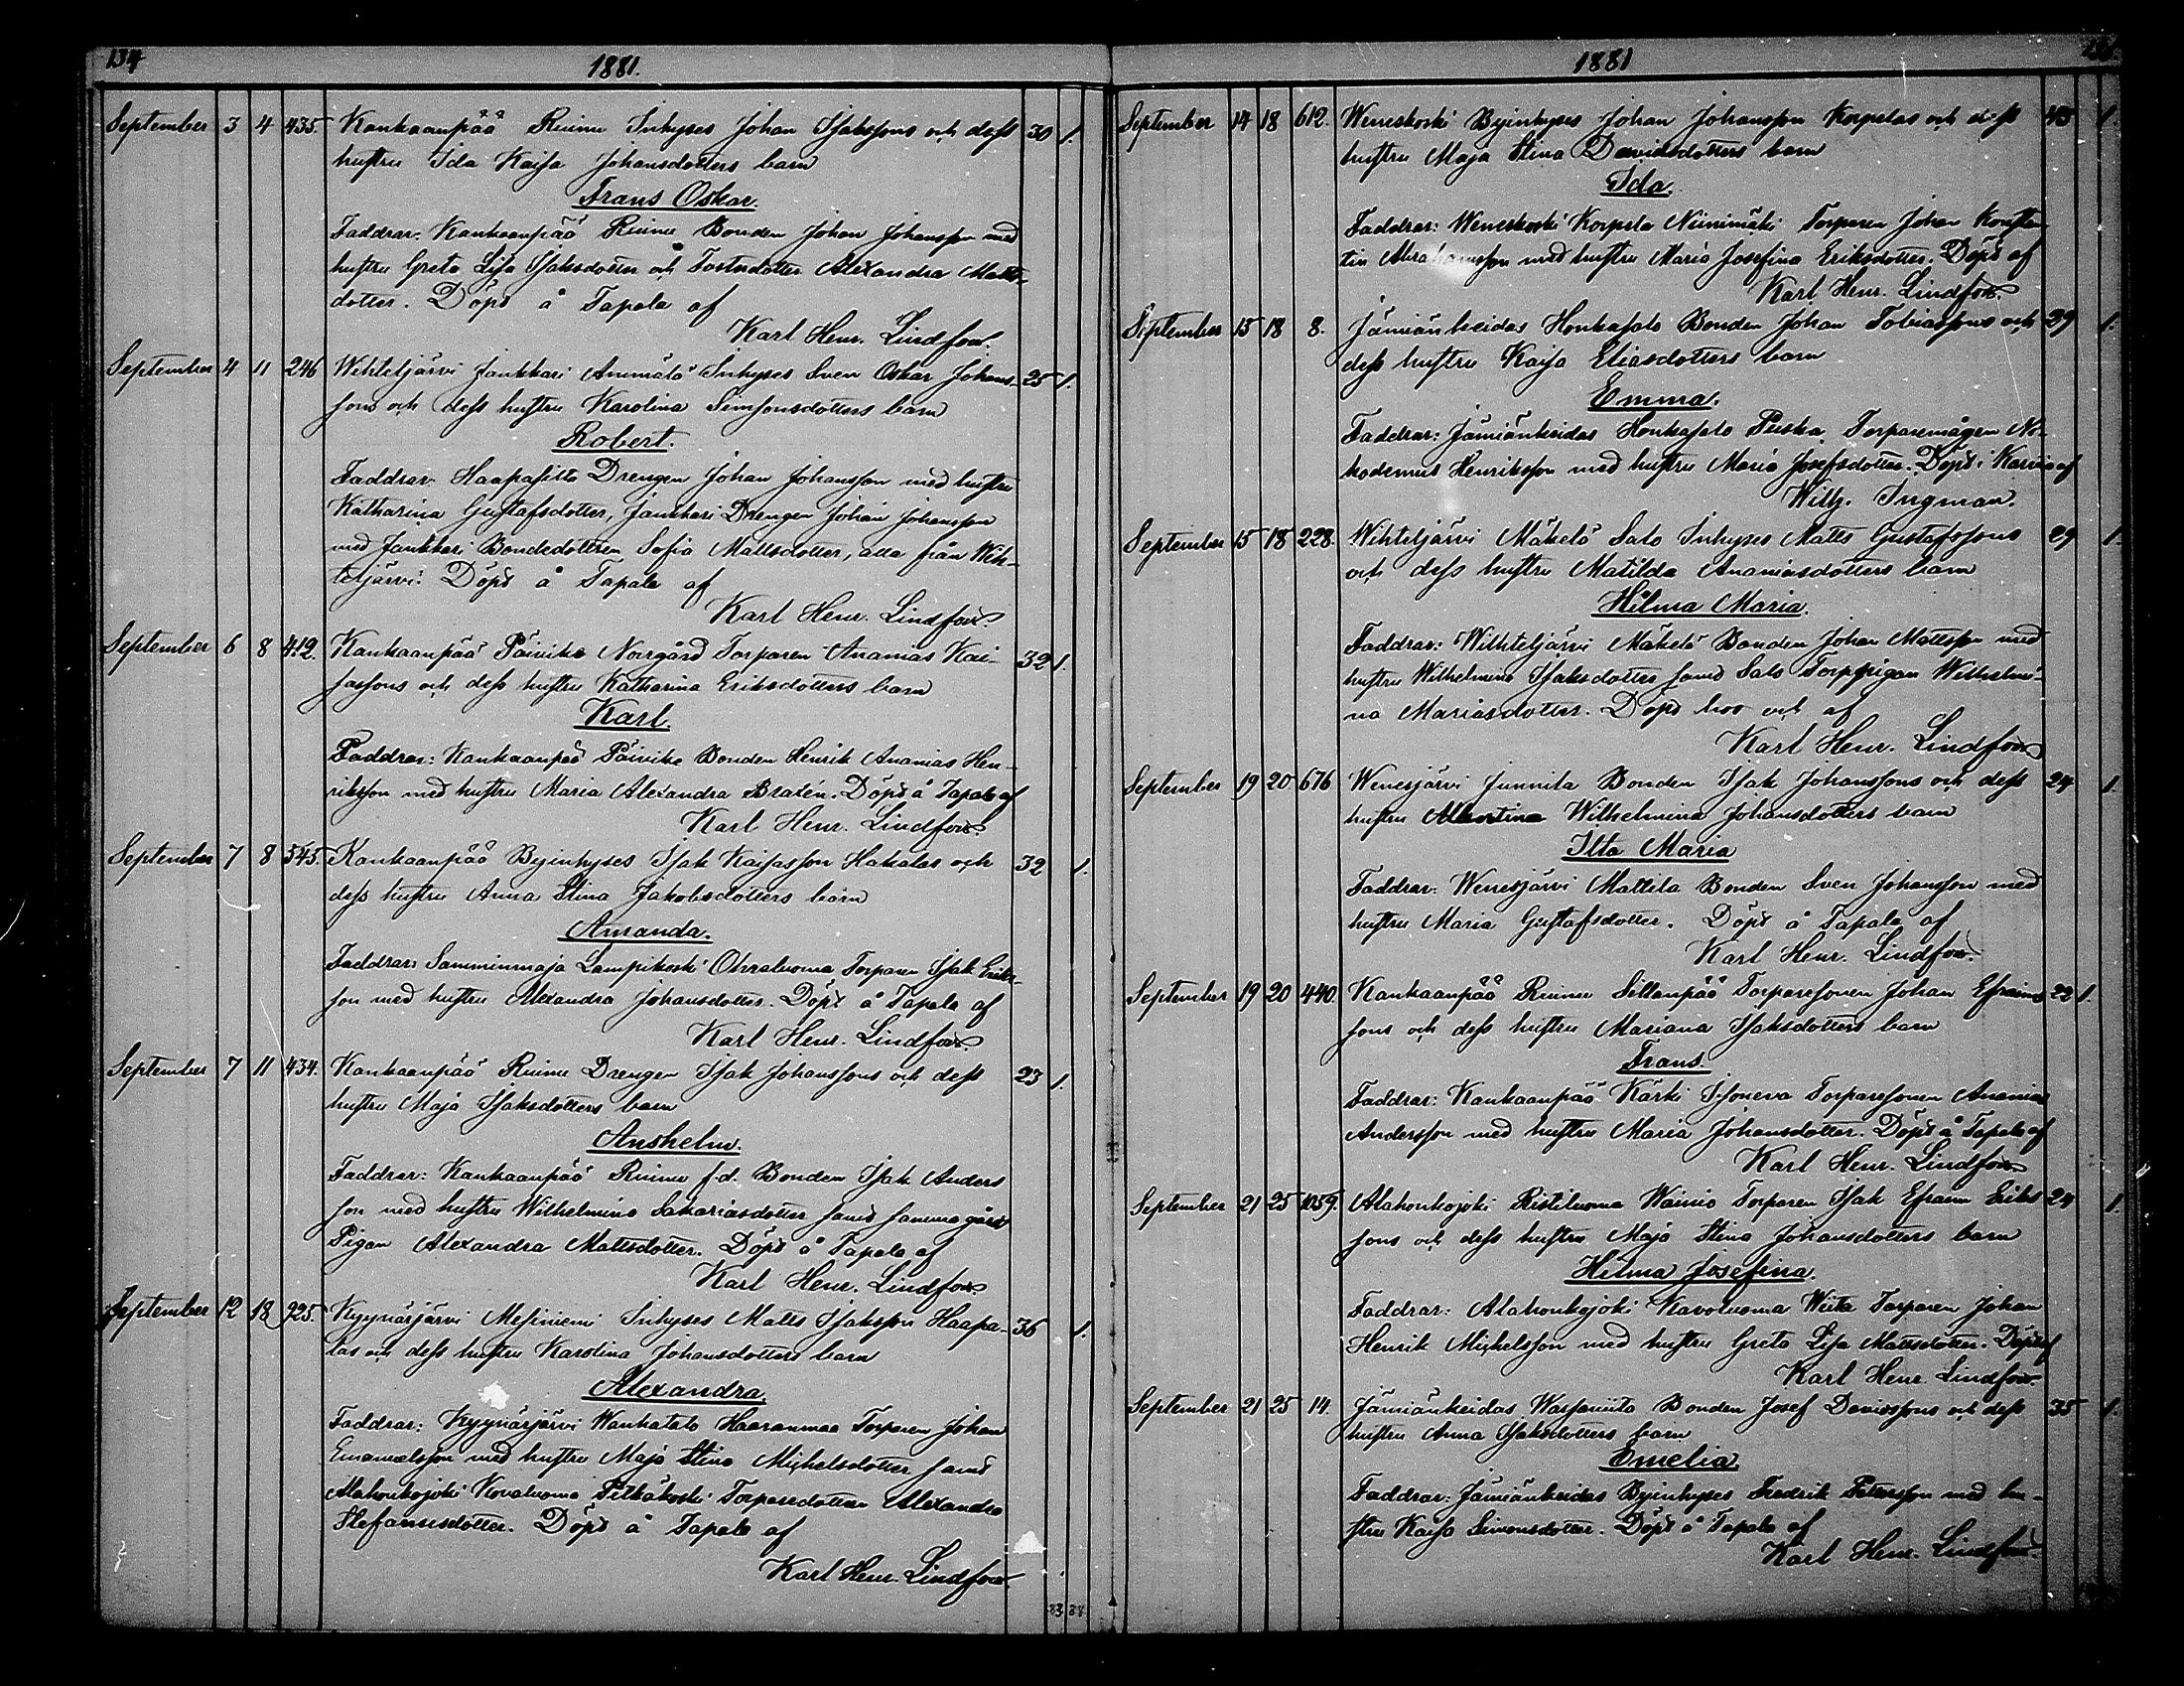 134
1881.
September 3 4 435. Kankaanpää Ruinu Inhyses Johan Isakssons och dess 30 1.
hustru Ida Kaisa Johansdotters barn
Frans Oskar.
Faddrar: Kankaanpää Ruinu Bonden Johan Johansson med
hustru Greta Lisa Isaksdotter och Alexandra Matts-
dotter. Döpt å Tapala af
Karl Henr. Lindfors.
September 4 11 246 Wihteljärvi Jankkari Ammälä Inhyses Sven Oskar Johans- 25 1.
sons och dess hustru Karolina Simsonsdotters barn
Robert.
Faddrar: Haapasilta Drengen Johan Johansson med hustru
Katharina Gustafsdotter, Jankkari Drengen Johan Johansson
med Jankkari Bondedottren Sofia Mattsdotter, alla från Wih-
teljärvi. Döpt å Tapala af
Karl Henr. Lindfors.
September 6 8 412. Kankaanpää Päivike Norrgård Torparen Ananias Kai- 32 1.
sassons och dess hustru Katharina Eriksdotters barn
Karl.
Faddrar: Kankaanpää Päivike Bonden Henrik Ananias Hen-
riksson med hustru Maria Alexandra Braxén. Döpt å Tapala af
Karl Henr. Lindfors.
September 7 8 545. Kankaanpää Byinhyses Isak Kaisasson Hakalas och 32 1.
dess hustru Anna Stina Jakobsdotters barn
Amanda.
Faddrar: Samminmaja Lampikoski Ohraluoma Torparen Isak Eriks-
son med hustru Alexandra Johansdotter. Döpt å Tapala af
Karl Henr. Lindfors.
September 7 11 434. Kankaanpää Ruinu Drengen Isak Johanssons och dess 23 1.
hustru Maja Isaksdotters barn
Anshelm.
Faddrar: Kankaanpää Ruinu f.d. Bonden Isak Anders
son med hustru Wilhelmina Sakariasdotter samt samma gårds
Pigan Alexandra Mattsdotter. Döpt å Tapala af
Karl Henr. Lindfors
September 12 18 925. Kyynärjärvi Mesiniemi Inhyses Matts Isaksson Haapa- 36 1.
las och dess hustru Karolina Johansdotters barn
Alexandra.
Faddrar: Kyynärjärvi Wankatalo Haaranmaa Torparen Johan
Emanuelsson med hustru Maja Stina Michelsdotter samt
Alahonkojoki Kovaluoma Pitkäkoski Torparedottren Alexandra
Stefansdotter. Döpt å Tapala af
Karl Henr. Lindfors.
33 38
1881
September 14 18 612. Weneskoski Byinhyses Johan Johansson Korpelas och dess 45 1
hustru Maja Stina Davidsdotters barn
Ida.
Faddrar: Weneskoski Korpela Niinimäki Torparen Johan Konstan
tin Abrahamsson med hustru Maria Josefina Eriksdotter. Döpt af
Karl Henr. Lindfors.
September 15 18 8. Jämiänkeidas Honkasalo Bonden Johan Tobiassons och 39 1.
dess hustru Kaisa Eliasdotters barn
Emma.
Faddrar: Jämiänkeidas Honkasalo Puska Torparemågen Ni-
kodemus Henriksson med hustru Maria Josefsdotter. Döpt i Karvia af
Wilh. Ingman.
September 15 18 228. Wihteljärvi Mäkelä Salo Inhyses Matts Gustafssons 29 1.
och dess hustru Matilda Ananiasdotters barn
Hilma Maria.
Faddrar: Wihteljärvi Mäkelä Bonden Johan Mattsson med
hustru Wilhelmina Isaksdotter samt Salo Torppigan Wilhelmi-
na Mariasdotter. Döpt hos och af
Karl Henr. Lindfors
September 19 20 676 Wenesjärvi Junnila Bonden Isak Johanssons och dess 24 1.
hustru Albertina Wilhelmina Johansdotters barn
Ilta Maria
Faddrar: Wenesjärvi Mattila Bonden Sven Johansson med
hustru Maria Gustafsdotter. Döpt å Tapala af
Karl Henr. Lindfors.
September 19 20 440. Kankaanpää Ruinu Sillanpää Torparesonen Johan Efraims 22 1.
sons och dess hustru Mariana Isaksdotters barn
Frans.
Faddrar: Kankaanpää Kärki Isoneva Torparesonen Ananias
Andersson med hustru Maria Johansdotter. Döpt å Tapala af
Karl Henr. Lindfors
September 21 25 1059. Alahonkojoki Ristiluoma Wainio Torparen Isak Efraim Eriks 24 1.
sons och dess hustru Maja Stina Johansdotters barn
Hilma Josefina.
Faddrar: Alahonkojoki Kavoluoma Wiita Torparen Johan
Henrik Michelsson med hustru Greta Lisa Mattsdotter. Döpt af
Karl Henr. Lindfors.
September 21 25 14. Jämiänkeidas Bonden Josef Davidssons och dess 35 1.
hustru Anna Isaksdotters barn
Emelia.
Faddrar: Jämiänkeidas Byinhyses Fredrik Petersson med hu-
stru Kaisa Simonsdotter. Döpt å Tapala af
Karl Henr. Lindfors.